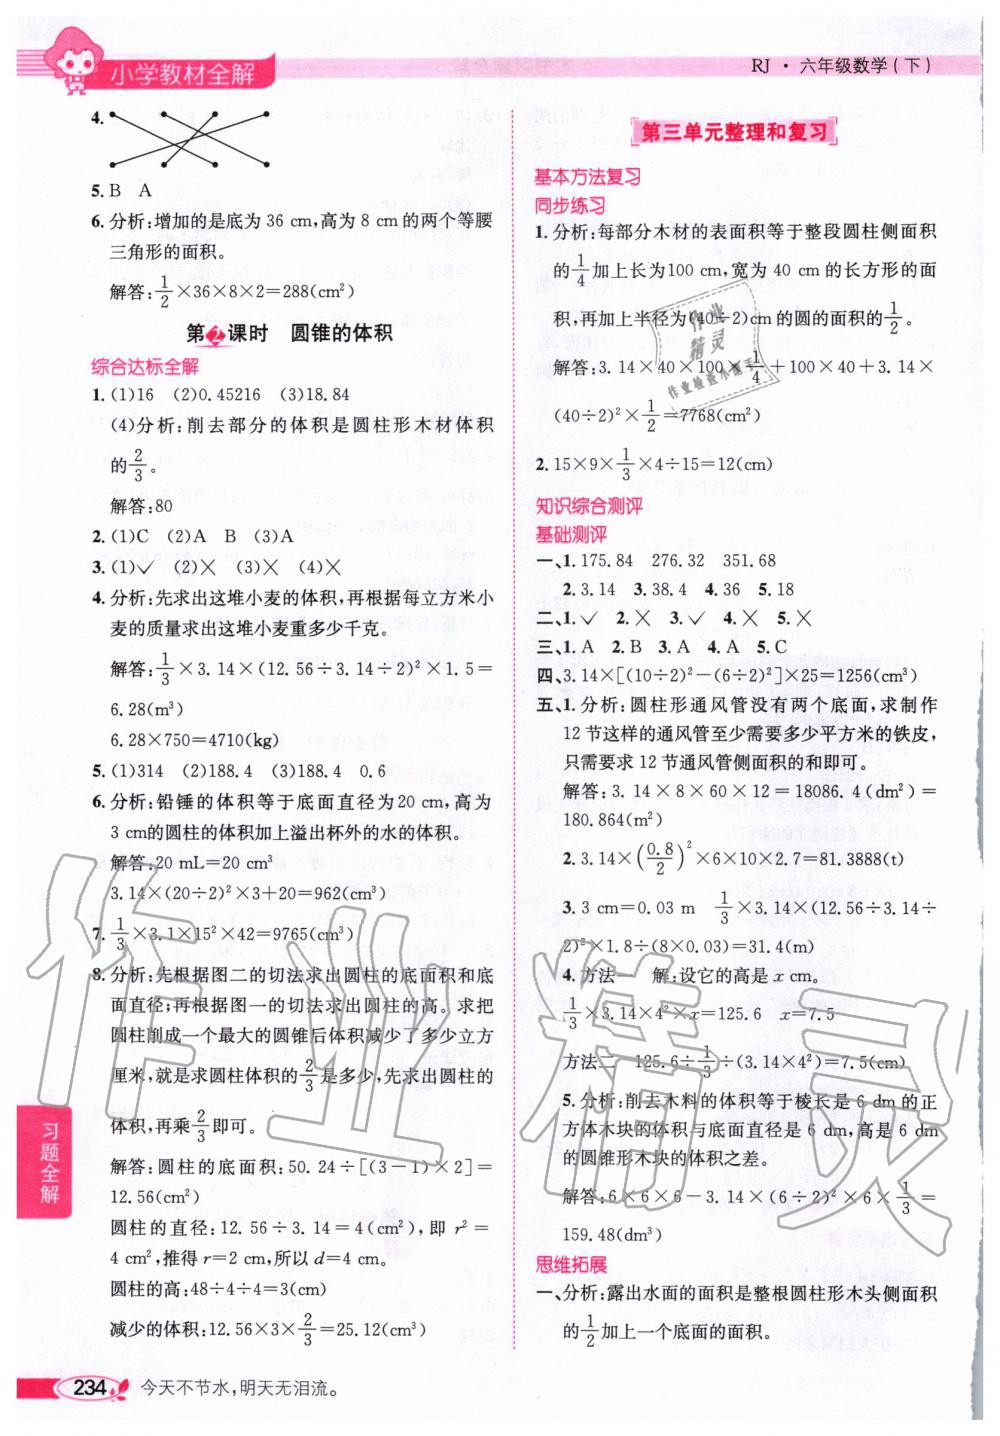 小学教材全解
RJ · 六年级数学(下)
4.
5. B A
6. 分析:增加的是底为 36 cm,高为 8 cm 的两个等腰
三角形的面积。
解答:1/2×36×8×2=288(cm²)
第2课时 圆锥的体积
综合达标全解
1. (1)16 (2)0.45216 (3)18.84
(4)分析:削去部分的体积是圆柱形木材体积
的2/3。
解答:80
2. (1)C (2)A B (3)A
3. (1)✓ (2)× (3)× (4)×
4. 分析:先求出这堆小麦的体积,再根据每立方米小
麦的质量求出这堆小麦重多少千克。
解答:1/3×3.14×(12.56÷3.14÷2)²×1.5=
6.28(m³)
6.28×750=4710(kg)
5. (1)314 (2)188.4 (3)188.4 0.6
6. 分析:铅锤的体积等于底面直径为20 cm,高为
3 cm的圆柱的体积加上溢出杯外的水的体积。
解答:20 mL=20 cm³
3.14×(20÷2)²×3+20=962(cm³)
7. 1/3×3.1×15²×42=9765(cm³)
8. 分析:先根据图二的切法求出圆柱的底面积和底
面直径;再根据图一的切法求出圆柱的高。求把
圆柱削成一个最大的圆锥后体积减少了多少立方
厘米,就是求圆柱体积的2/3是多少,先求出圆柱的
体积,再乘2/3即可。
解答:圆柱的底面积:50.24÷[(3-1)×2]=
12.56(cm²)
圆柱的直径:12.56÷3.14=4(cm²),即 r²=
4 cm²,推得 r=2 cm,所以 d=4 cm。
圆柱的高:48÷4÷4=3(cm)
减少的体积:12.56×3×2/3=25.12(cm³)
第三单元整理和复习
基本方法复习
同步练习
1. 分析:每部分木材的表面积等于整段圆柱侧面积
的1/4加上长为100 cm,宽为 40 cm的长方形的面
积,再加上半径为(40÷2)cm的圆的面积的1/2。
解答:3.14×40×100×1/4+100×40+3.14×
(40÷2)²×1/2=7768(cm²)
2. 15×9×1/3×4÷15=12(cm)
知识综合测评
基础测评
一、1. 175.84 276.32 351.68
2. 3.14 3. 38.4 4. 36 5. 18
二、1. ✓ 2. × 3. ✓ 4. × 5. ×
三、1. A 2. B 3. A 4. A 5. C
四、3.14×[(10÷2)²-(6÷2)²]×25=1256(cm³)
五、1. 分析:圆柱形通风管没有两个底面,求制作
12 节这样的通风管至少需要多少平方米的铁皮,
只需要求 12 节通风管侧面积的和即可。
解答:3.14×8×60×12=18086.4(dm²)=
180.864(m²)
2. 3.14×(0.8/2)²×6×10×2.7=81.3888(t)
3. 3 cm=0.03 m 1/3×3.14×(12.56÷3.14÷
2)²×1.8÷(8×0.03)=31.4(m)
4. 方法一 解:设它的高是 x cm。
1/3×3.14×4²×x=125.6 x=7.5
方法二 125.6÷1/3÷(3.14×4²)=7.5(cm)
5. 分析:削去木料的体积等于棱长是 6 dm 的正
方体木块的体积与底面直径是 6 dm,高是 6 dm
的圆锥形木块的体积之差。
解答:6×6×6-3.14×(6÷2)²×6×1/3=
159.48(dm³)
思维拓展
一、分析:露出水面的面积是整根圆柱形木头侧面积
的1/2加上一个底面的面积。
习题全解
234 今天不节水,明天无泪流。
作业精灵
作业精灵
作业检查小帮手